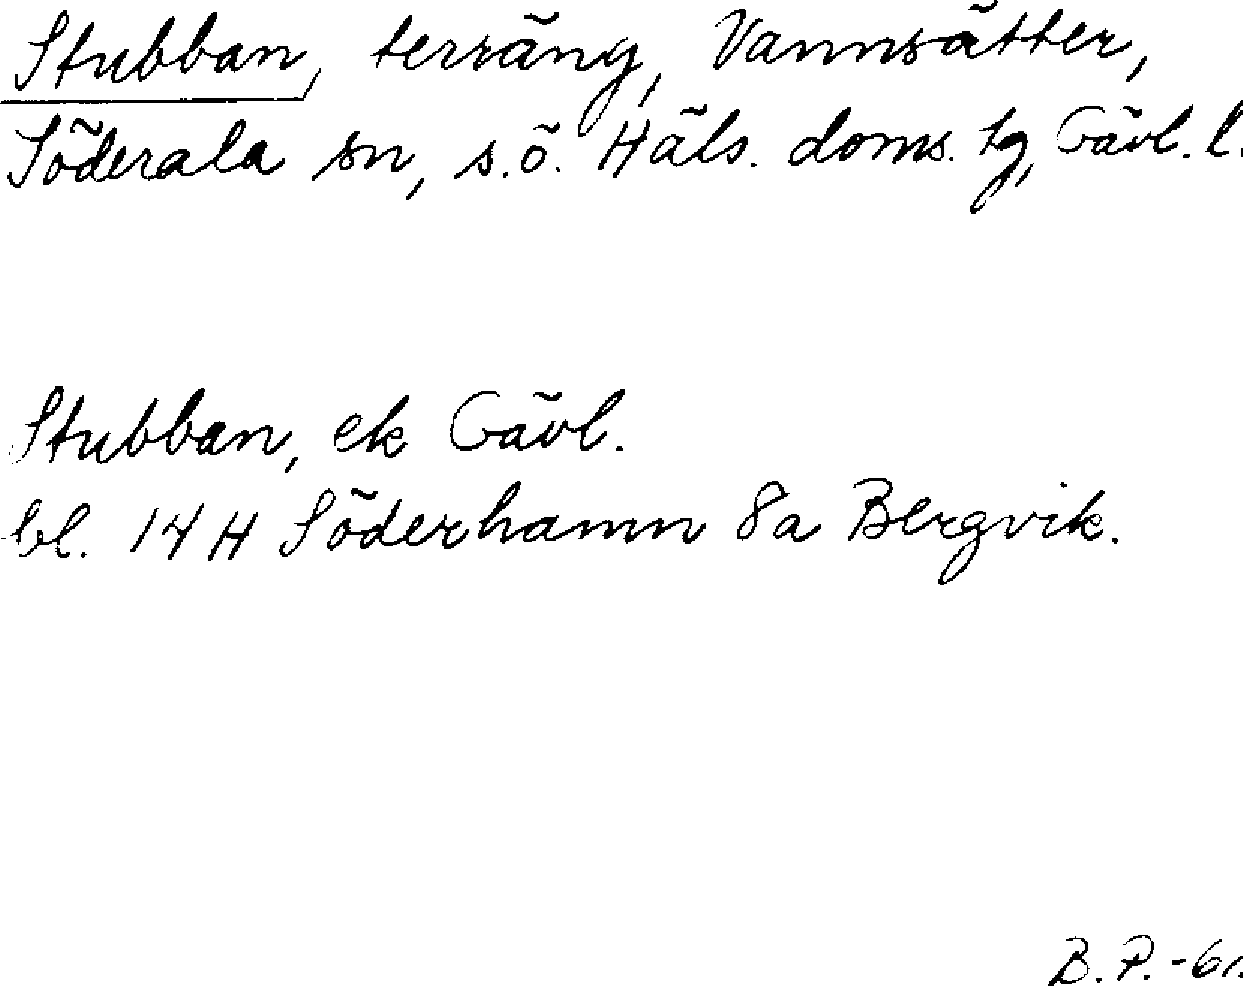 Stubban, terräng, Vannsätter,
Söderala sn, s.ö. Häls. doms. tg, Gävl. l.
Stubban, ek Gävl.
bl. 14 H Söderhamn 8a Bergvik.
B. P. -61.